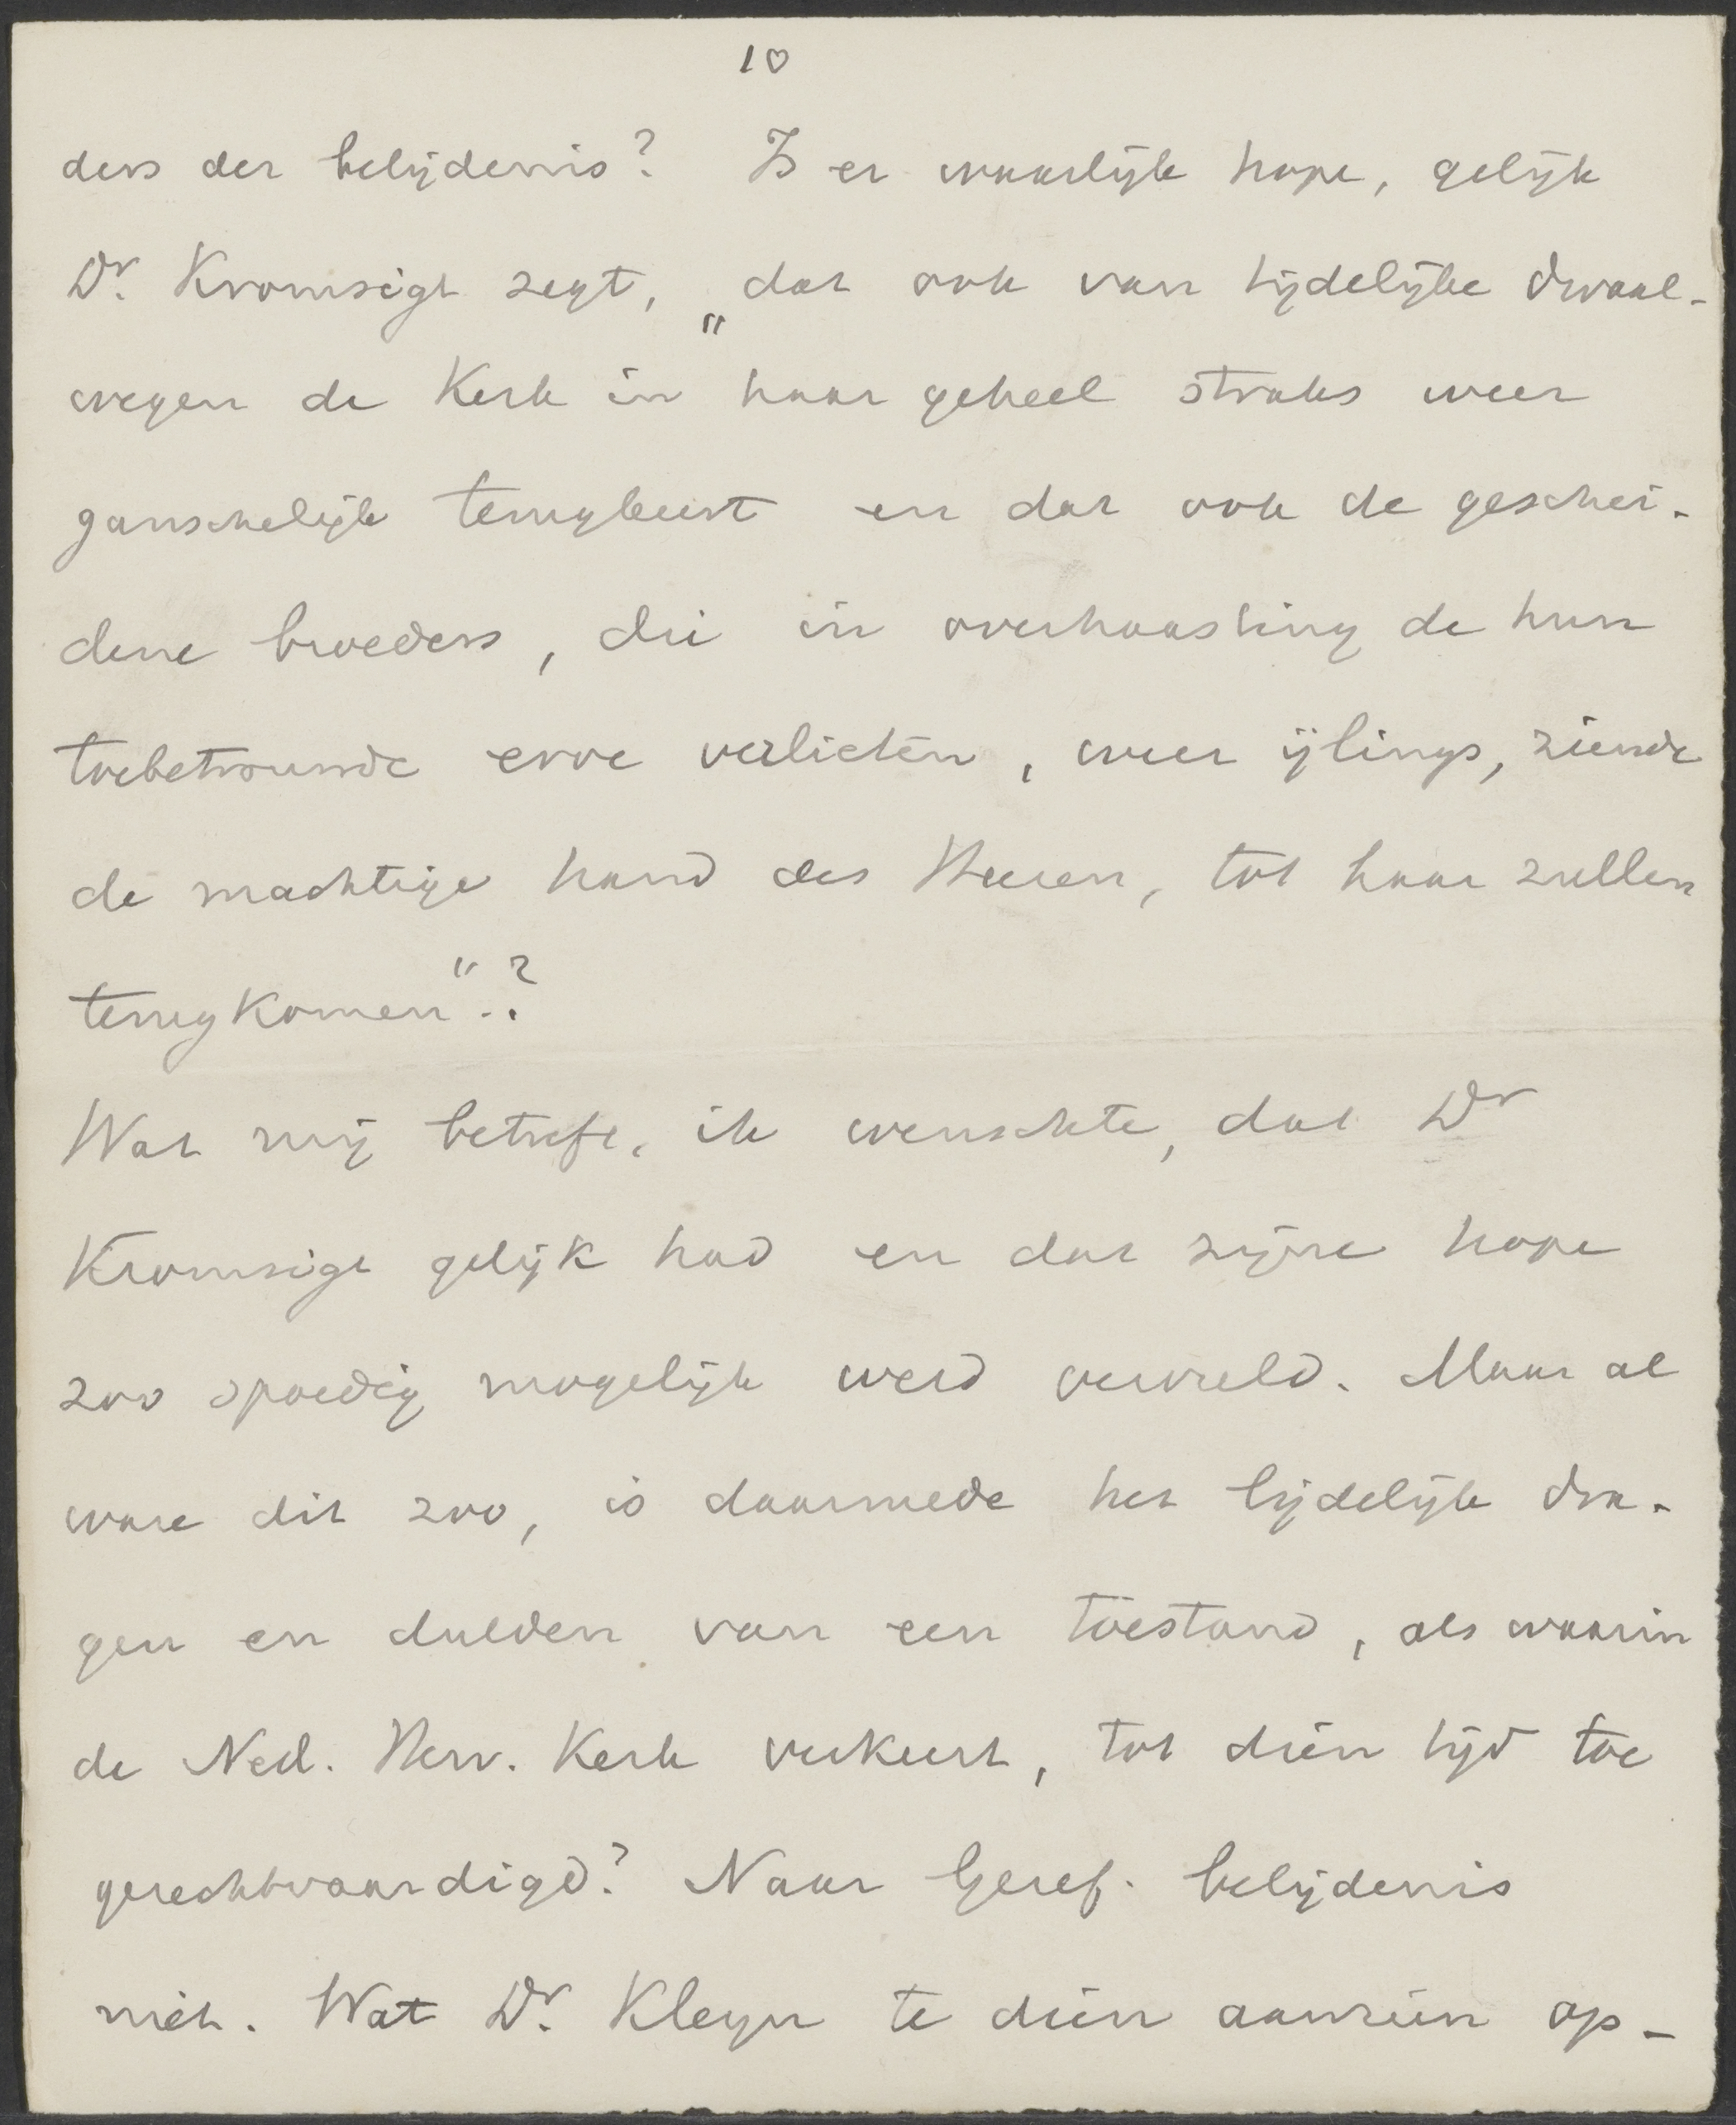 10
ders der belijdenis? Is er waarlijk hope, gelijk
Dr. Kromsigt zegt, „dat ook van tijdelijke dwaal-
wegen de Kerk in haar geheel straks weer
ganschelijk terugkeert en dat ook de geschei-
dene broeders, die in overhaasting de hun
toebetrouwde erve verlieten, weer ijlings, ziende
de machtige hand des Heeren, tot haar zullen
terugkomen"?
Wat mij betreft, ik wenschte, dat Dr
Kromsigt gelijk had en dat zijne hope
zoo spoedig mogelijk werd vervuld. Maar al
ware dit zoo, is daarmede het lijdelijk dra-
gen en dulden van een toestand, als waarin
de Ned. Herv. Kerk verkeert, tot dien tijd toe
gerechtvaardigd? Naar Geref. belijdenis
niet. Wat Dr. Kleyn te dien aanzien op-